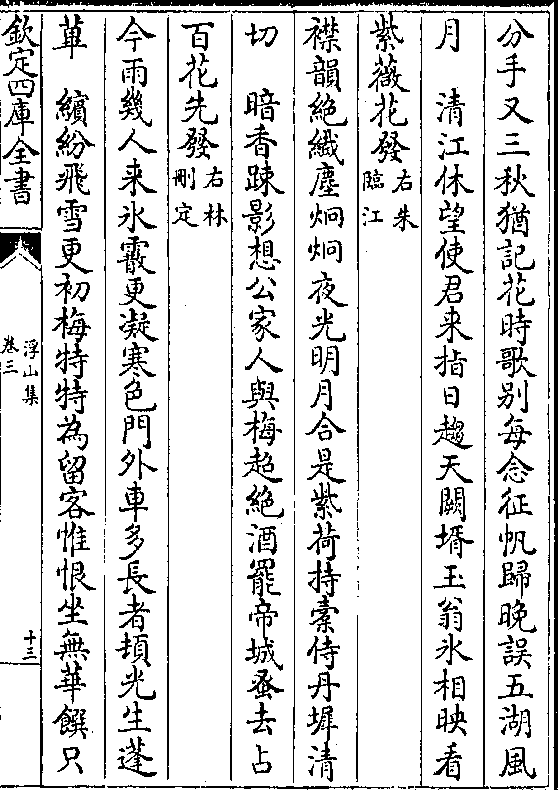 分手又三秋猶記花時歌别每念征帆歸晚誤五湖風
月　清江休望使君来指日趨天闕壻玉翁氷相映看
紫薇花發右朱臨江
襟韻絶纎塵炯炯夜光明月合是紫荷持槖侍丹墀清
切　暗香踈影想公家人與梅超絶酒罷帝城蚤去占
百花先發右林刪定
今雨幾人来氷霰更凝寒色門外車多長者頓光生蓬
蓽　繽紛飛雪更初梅特特為留客惟恨坐無華饌只
欽定四庫全書
浮山集
卷三
十三